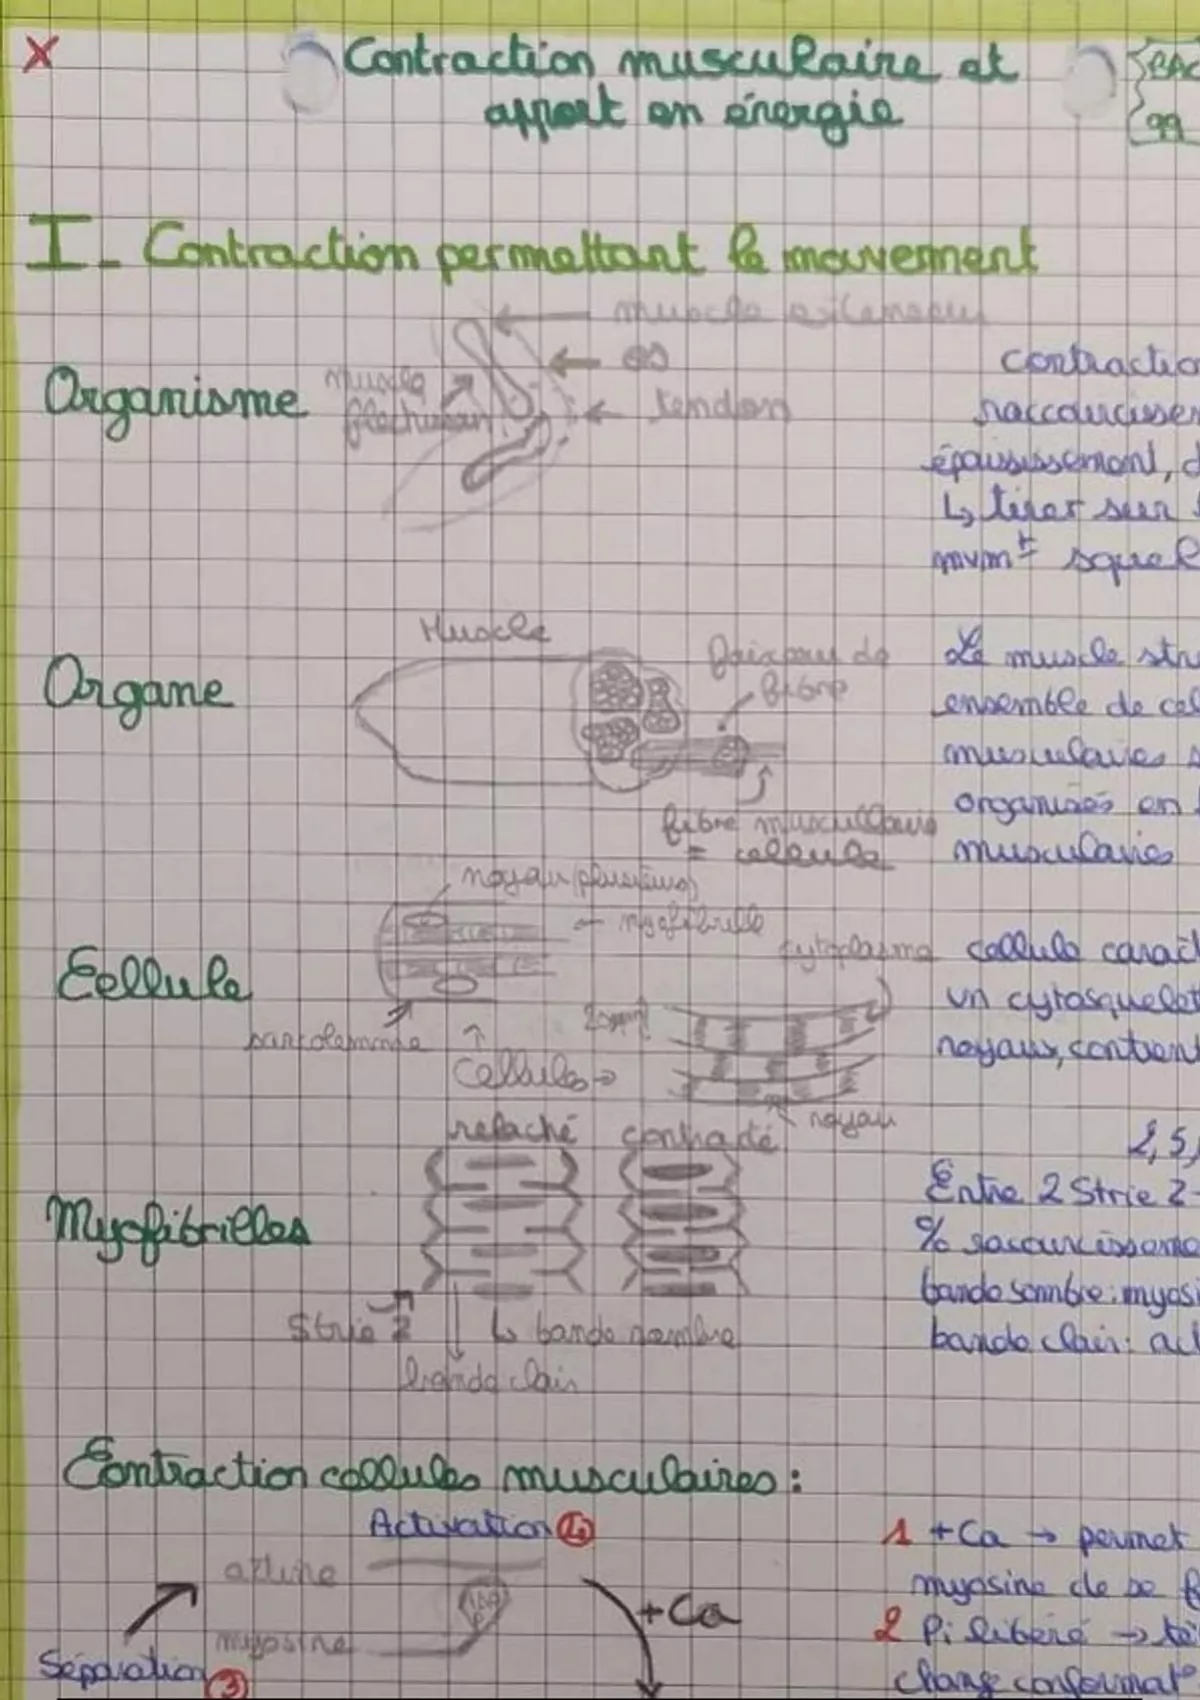 X
Contraction musculaire et
apport en énergie
BAC
99
I - Contraction permettant le mouvement
muscle extenseur
os
muscle
fléchisseur
tendon
Organisme
contractio
raccourcissem
épaississement, d
↳ tirer sur
mvmt squel
Muscle
faisceau de
fibre
Organe
Le muscle stri
ensemble de cel
musculaires s
organisés en
musculaires
fibre musculaire
= cellule
noyau (plusieurs)
← myofibrille
cytoplasme
Cellule
cellule caract
un cytosquelet
noyaux, contient
sarcolemme
Cellules →
noyau
relaché contracté
Myofibrilles
2,5
Entre 2 Strie Z
% racourcisseme
bande sombre : myosi
bande clair : act
Strie Z
↳ bande sombre
bande clair
Contraction cellules musculaires :
Activation 4
actine
myosine
+Ca
Séparation 3
1 +Ca → permet
myosine de se f
2 Pi libéré → tê
change conformat°